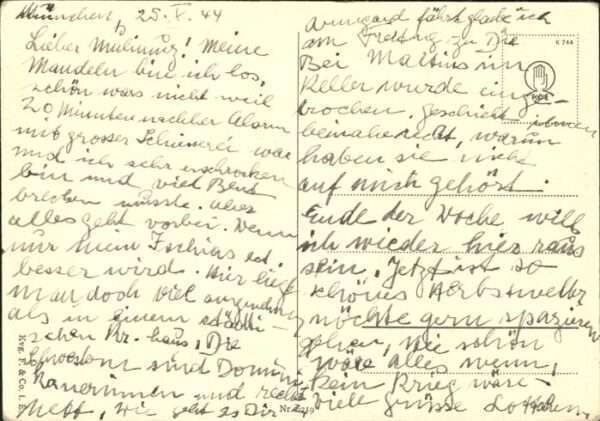 München, 25. X. 44
Lieber Mulinung! Meine
Mandeln bin ich los,
schön wars nicht weil
20 Minuten nachher Alarm
mit grosser Schiesserei war
und ich sehr erschrocken
bin und viel Blut
brechen musste. Aber
alles geht vorbei. Wenn
nur mein Ischias etc.
besser wird. Hier liege
man doch viel angenehmer
als in einem städti-
schen Kr.haus, Die
Schwestern sind Domini-
kanerinnen und recht
nett, Wie geht es Dir
Armgard fährt glaube ich
am Freitag zu Dir
Bei Mattins im
Keller wurde einge-
brochen, geschieht ihnen
beinahe recht, warum
haben sie nicht
auf mich gehört.
Ende der Woche will
ich wieder hier raus
sein. Jetzt ist so
schönes Herbstwetter
möchte gern spazieren
gehen, wie schön
wäre alles wenn
kein Krieg wäre
Viele Grüsse Lottchen
K 746
Krg. F. & Co. i. E.
Nr.